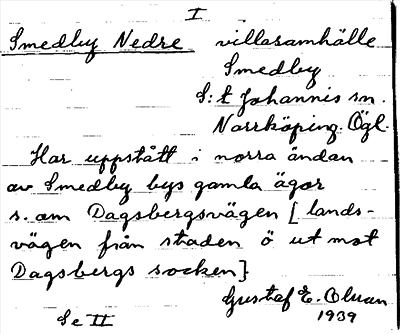 I
Smedby Nedre villasamhälle
Smedby
S:t Johannis sn.
Norrköping. Ögl.
Har uppstått i norra ändan
av Smedby bys gamla ägor
s. om Dagsbergsvägen [lands-
vägen från staden ö ut mot
Dagsbergs socken]
Gustaf E. Olsson
1939
Se II